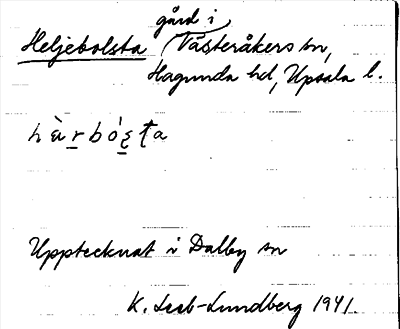 gård i
Heljebolsta Västeråkers sn,
Hagunda hd, Upsala l.
hàrbósta
Upptecknat i Dalby sn
K. Leeb-Lundberg 1941.